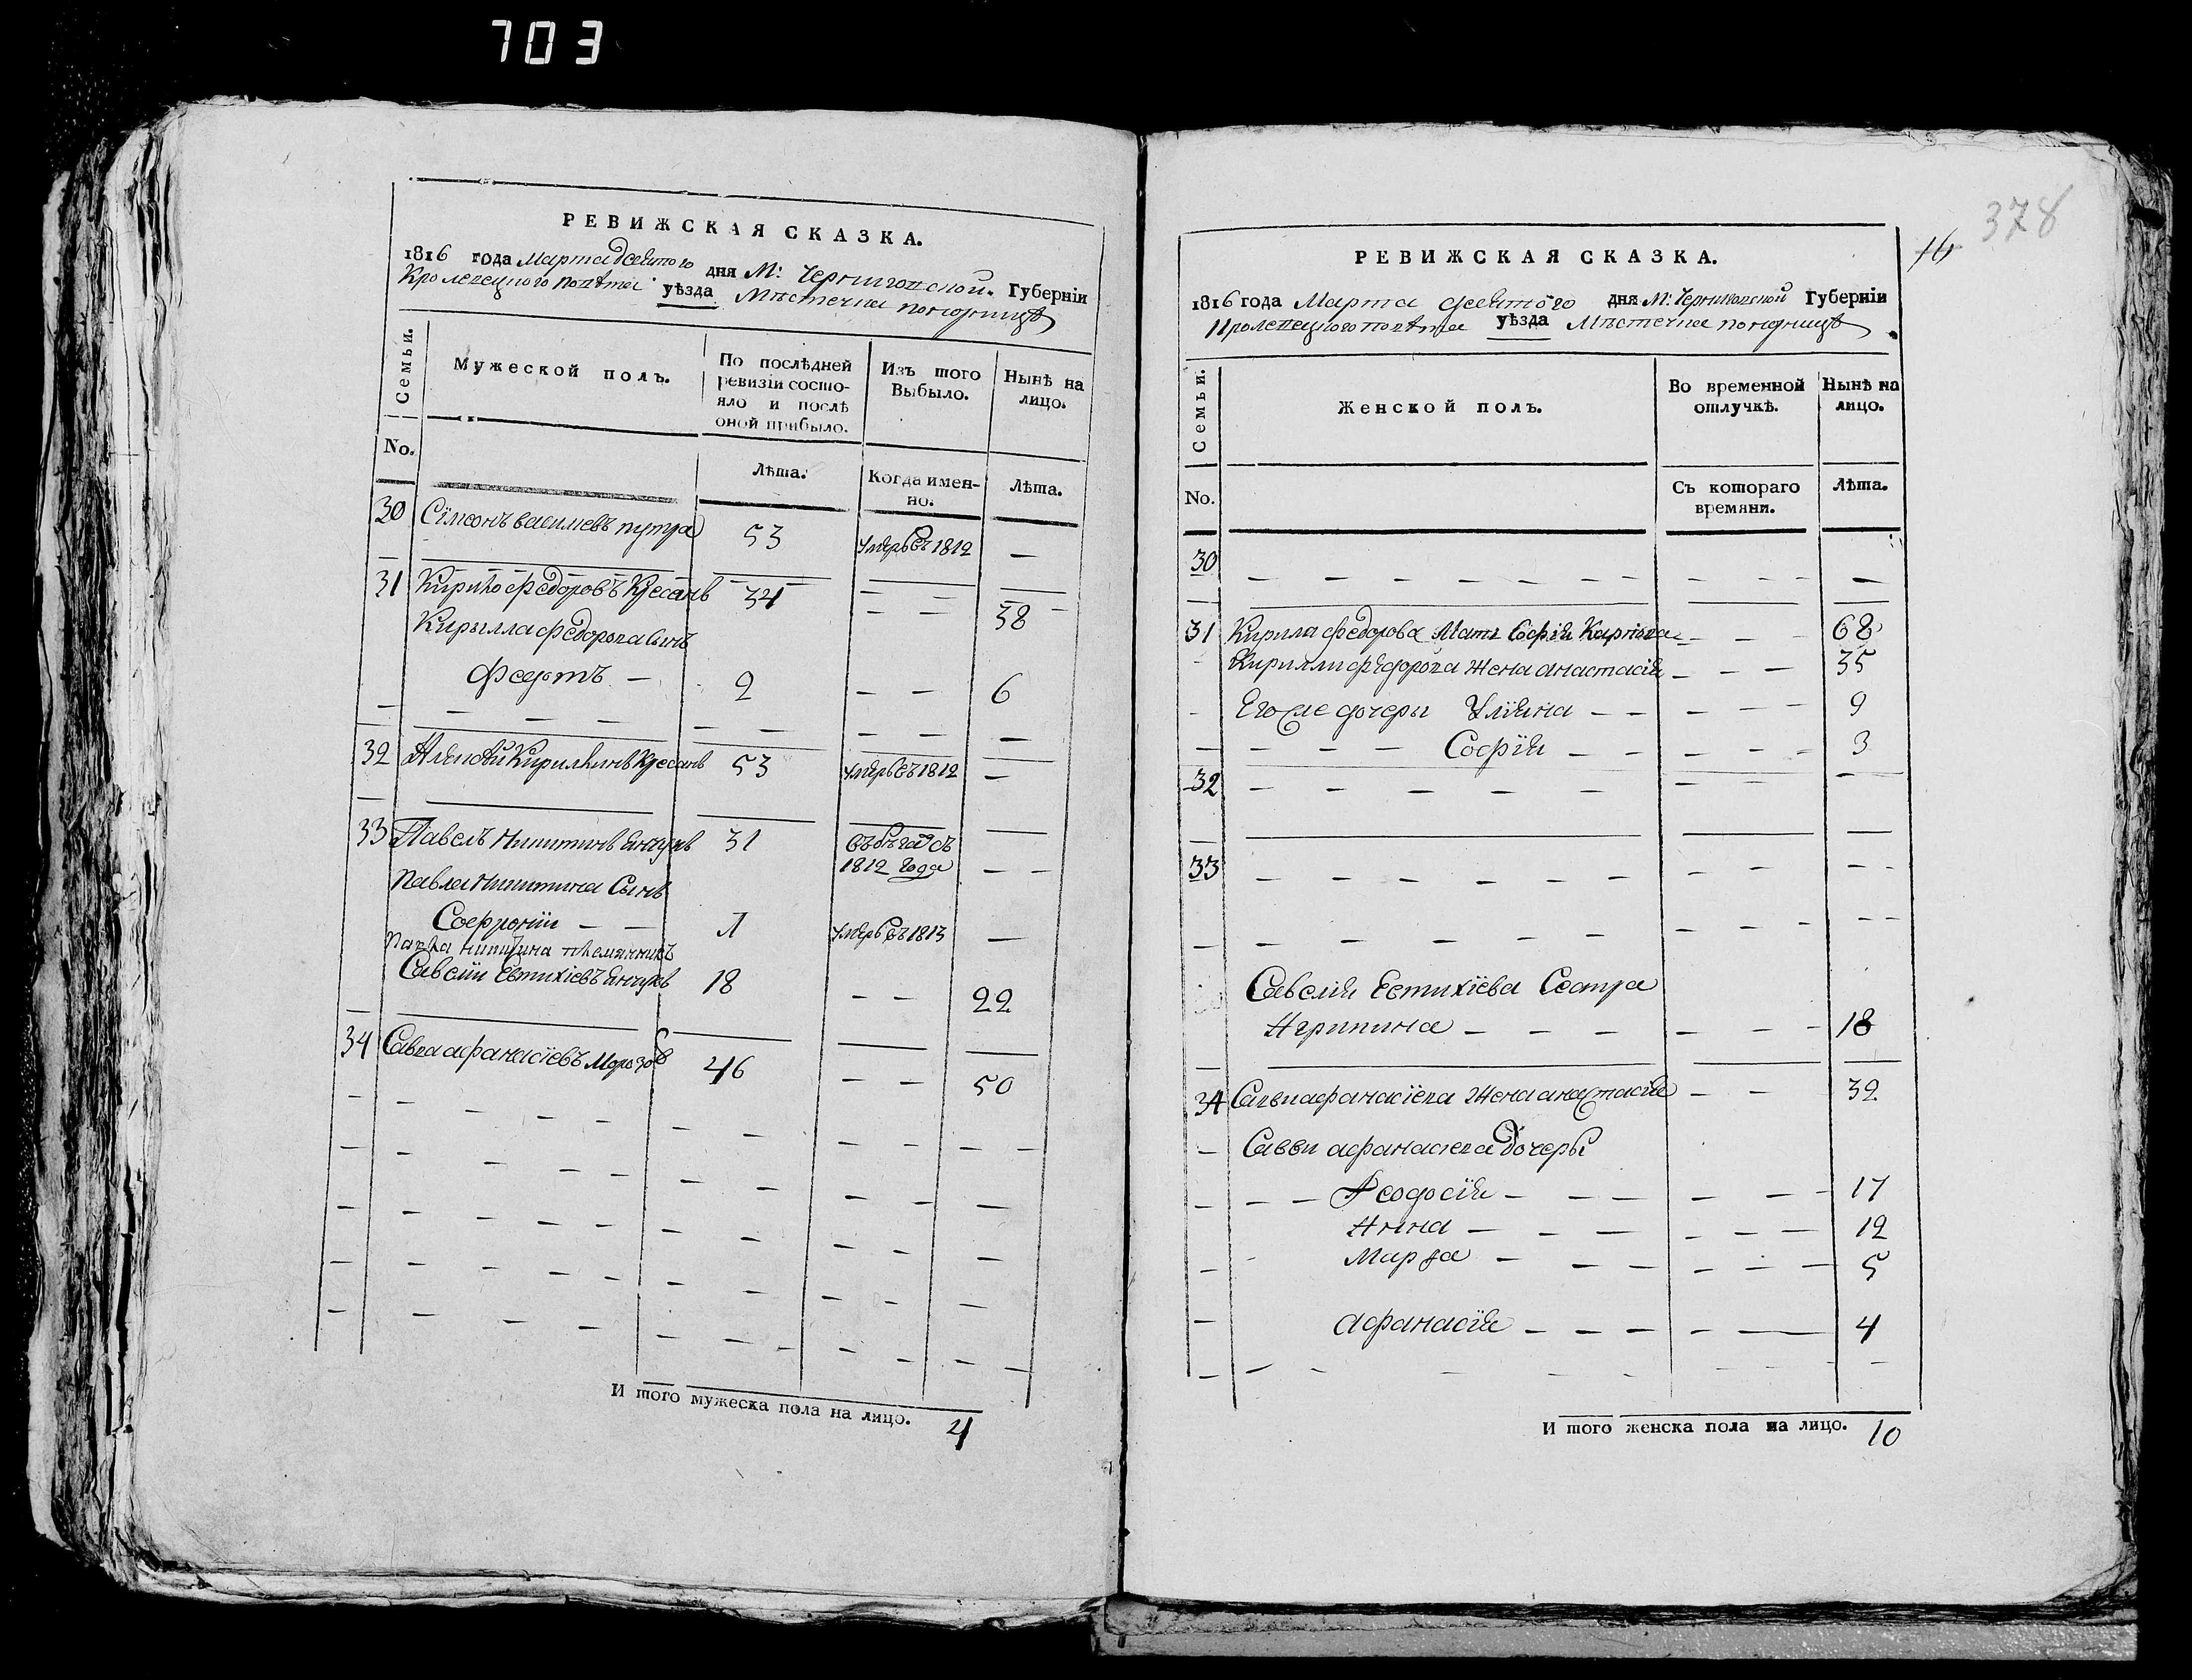 703
РЕВИЖСКАЯ СКАЗКА.
1816 года Марта девятого дня М: Черниговской Губерніи
Кролевецкого повѣта уѣзда Мѣстечка понорницѣ
Семьи.
Мужеской полъ.
По послѣдней ревизіи состояло и послѣ оной прибыло.
Изъ того Выбыло.
Ныне на лицо.
No.
Лѣта.
Когда именно.
Лѣта.
30 Сімеонъ василіевъ путра 53 умеръ въ 1812 —
31 Кирило федоровъ 34 38
Кирылла федорова сынъ
феготъ — 2 — — 6
32 Кирилинъ 53 умеръ въ 1812 —
33 Павелъ Никитинъ 31 въ бѣгахъ съ
1812 года — —
Павла Никитина Сынъ
Софроній — — 1 умеръ въ 1813 —
Павла никитина племянникъ
Савелій Евтихіевъ 18 — — 22
34 Савва афанасіевъ Морозов 46 — — 50
И того мужеска пола на лицо. 4
378
16
РЕВИЖСКАЯ СКАЗКА.
1816 года Марта девятого дня М: Черниговской Губерніи
Кролевецкого повѣта уѣзда Мѣстечка понорницѣ
Семьи.
Женской полъ.
Во временной отлучкѣ.
Нынѣ на лицо.
No.
Съ котораго времяни.
Лѣта.
30 — — — — — — — — — — —
31 Кирила федорова Мать Софія Карпова — — — 68
Кирилли федорова Жена анастасія — — — 35
Его же дочеры Уліяна — — — — — 9
— — — Софія — — — — — 3
32 — — — — — — — —
33 — — — — — — — — — — —
Савелія Евтихіева Сестра
Агрипина — — — — — — 18
34 Саввиафанасіева Жена анастасія — — 39
— Савви афанасіева дочеры
— — — Феодосія — — — — — — 17
Анна — — — — — — 12
Марфа — — — — — — 5
афанасія — — — — — 4
И того женска пола на лицо. 10